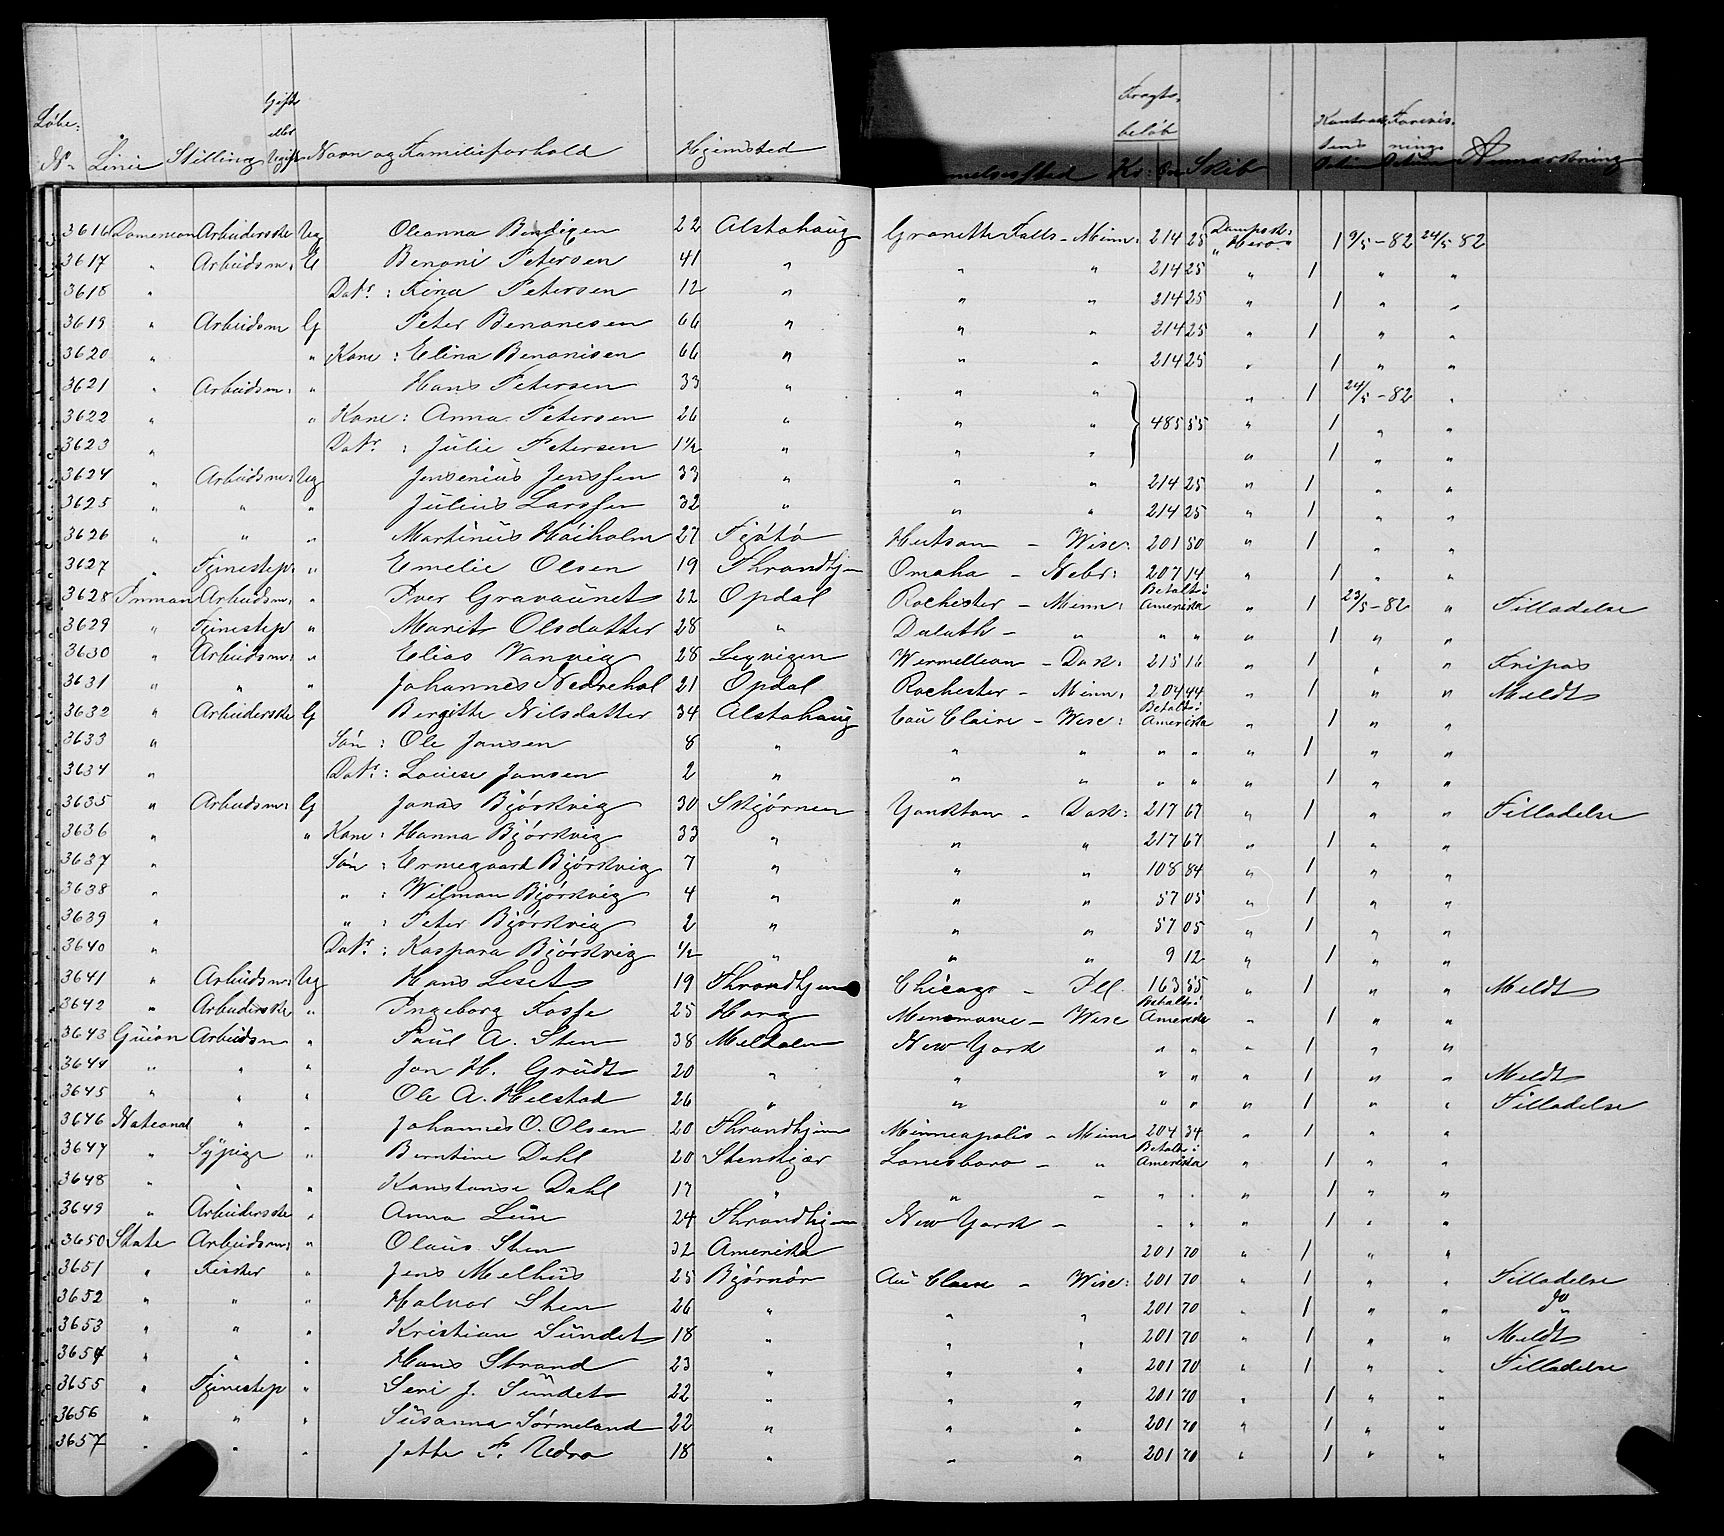 Løbe- No Linie Stilling Gift eller Ugift Navn og Familieforhold Hjemsted Fragtbeløb Kr: Øre Skib Anmærkning
3616 Dominion Arbeiderske Ug Oleanna Bendigen 22 Alstahaug Granette Falls - Minn: 214 25 Dampsk: "Hero" 1 9/5-82 24/5 82
3617 " Arbeidsm: Benoni Petersen 41 " " " 214 25 " 1 " "
3618 " Datr: Kina Petersen 12 " " " 214 25 " 1 " "
3619 " Arbeidsm G Peter Benonesen 66 " " " 214 25 " 1 " "
3620 " " Kone: Elina Benonisen 66 " " " 214 25 " 1 " "
3621 " Arbeidsm: " Hans Petersen 33 " " " " 1 24/5-82 "
3622 " " Kone: Anna Petersen 26 " " " 485 55 " 1 " "
3623 " Datr: Julie Petersen 1½ " " " " 1 " "
3624 " Arbeidsm: Ug Jensenius Jenssen 33 " " " 214 25 " 1 " "
3625 " " " Julius Larssen 32 " " " 214 25 " 1 " "
3626 " " " Martinus Høiholm 27 Fjøtø Hutson - Wisc: 201 50 " 1 " "
3627 " Tjenestep: " Emelie Olsen 19 Throndhj- Omaha - Nebr: 207 14 " 1 " "
3628 Inman Arbeidsm: " Iver Gravaunet 22 Opdal Rochester - Minn: Betalt i Amerika " 1 23/5-82 " Tilladelse
3629 " Tjenestep " Marit Olsdatter 28 " Duluth - " " " " 1 " "
3630 " Arbeidsm: " Elias Vanvig 28 Legvigen Wermellion - Dak: 215 16 " 1 " " Fripas
3631 " " " Johannes Nedrehol 21 Opdal Rochester - Minn: 204 44 " 1 " " Meldt
3632 " Arbeiderske G Bergitte Nilsdatter 34 Alstahaug Eau Claire - Wisc: Betalt i Amerika " 1 " "
3633 " Søn: Ole Jansen 8 " " " " " " 1 " "
3634 " Datr: Louise Jansen 2 " " " " " " 1 " "
3635 " Arbeidsm: G Jonas Bjørkvig 30 Skjørnen Yankton - Dak: 217 67 " 1 " " Tilladelse
3636 " " Kone: Hanna Bjørkvig 33 " " " 217 67 " 1 " "
3637 " Søn: Ermegaard Bjørkvig 7 " " " 108 84 " 1 " "
3638 " " : Wilman Bjørkvig 4 " " " 57 05 " 1 " "
3639 " " : Peter Bjørkvig 2 " " " 57 05 " 1 " "
3640 " Datr: Kaspara Bjørkvig ½ " " " 9 12 " 1 " "
3641 " Arbeidsm: Ug Hans Leset 19 Throndhjem Chicago - Ill. 163 55 " 1 " " Meldt
3642 " Arbeiderske " Ingeborg Fosse 25 Horg Menomonie - Wisc Betalt i Amerika " 1 " "
3643 Guion Arbeidsm " Paul A. Sten 38 Meldalen New York " " " 1 " "
3644 " " " Jon H. Grudt 20 " " " " " 1 " " Meldt
3645 " " " Ole A. Helstad 26 " " " " " 1 " " Tilladelse
3646 National " " Johannes O. Olsen 20 Throndhjem Minneapolis - Minn 204 34 " 1 " "
3647 " Sypige " Berntine Dahl 20 Stenkjær Lanesboro - " Betalt i Amerika " 1 " "
3648 " " " Konstanse Dahl 17 " " " " " " 1 " "
3649 " Arbeiderske " Anna Lün 24 Throndhj- New York - " " " 1 " "
3650 State Arbeidsm: " Olaus Sten 32 Amerika 201 70 " 1 " "
3651 " Fisker " Jens Melhus 25 Bjørnør Au Claire - Wisc: 201 70 " 1 " " Tilladelse
3652 " " " Halvor Sten 26 " " " 201 70 " 1 " " Do
3653 " " " Kristian Sundet 18 " " " 201 70 " 1 " " Meldt
3654 " " " Hans Strand 23 " " " 201 70 " 1 " " Tilladelse
3655 " Tjenestep " Seri J. Sundet 22 " " " 201 70 " 1 " "
3656 " " " Susanna Sørmeland 22 " " " 201 70 " 1 " "
3657 " " " Jatte F. Udro 18 " " " 201 70 " 1 " "